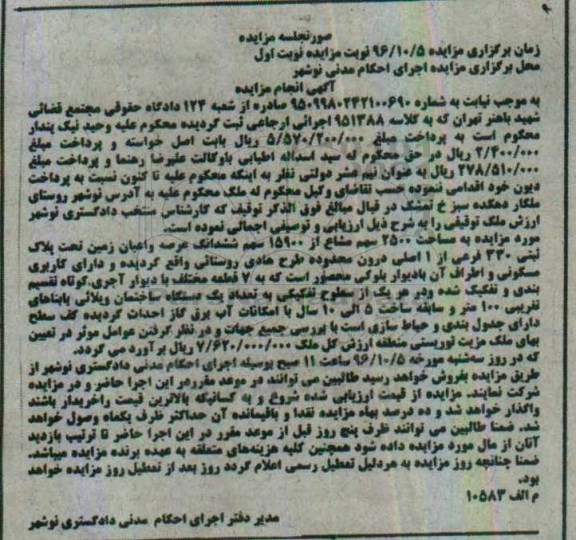 صورتجلسه مزایده
زمان برگزاری مزایده ۹۶/۱۰/۵ نوبت مزایده نوبت اول
محل برگزاری مزایده اجرای احکام مدنی نوشهر
آگهی انجام مزایده
به موجب نیابت به شماره ۹۵۰۹۹۸۰۲۴۲۱۰۰۶۹۰ صادره از شعبه ۱۲۴ دادگاه حقوقی مجتمع قضائی
شهید باهنر تهران که به کلاسه ۹۵۱۳۸۸ اجرائی ارجاعی ثبت گردیده محکوم علیه وحید نیک پندار
محکوم است به پرداخت مبلغ ۵/۵۷۰/۲۰۰/۰۰۰ ریال بابت اصل خواسته و پرداخت مبلغ
۲/۴۰۰/۰۰۰ ریال در حق محکوم له سید اسداله اطیابی باوکالت علیرضا رهنما و پرداخت مبلغ
۲۷۸/۵۱۰/۰۰۰ ریال به عنوان نیم عشر دولتی نظر به اینکه محکوم علیه تا کنون نسبت به پرداخت
دیون خود اقدامی ننموده حسب تقاضای وکیل محکوم له ملک محکوم علیه به آدرس نوشهر روستای
ملکار دهکده سبز خ تمشک در قبال مبالغ فوق الذکر توقیف که کارشناس منتخب دادگستری نوشهر
ارزش ملک توقیفی را به شرح ذیل ارزیابی و توصیفی اجمالی نموده است.
مورد مزایده به مساحت ۲۵۰۰ سهم مشاع از ۱۵۹۰۰ سهم ششدانگ عرصه واعیان زمین تحت پلاک
ثبتی ۳۳۰ فرعی از ۱ اصلی درون محدوده طرح هادی روستائی واقع گردیده و دارای کاربری
مسکونی و اطراف آن بادیوار بلوکی محصور است که به ۷ قطعه مختلف با دیوار آجری.کوتاه تقسیم
بندی و تفکیک شده ودر هر یک از سطوح تفکیکی به تعداد یک دستگاه ساختمان ویلائی بابناهای
تقریبی ۱۰۰ متر و سابقه ساخت ۵ الی ۱۰ سال با امکانات آب برق گاز احداث گردیده کف سطح
دارای جدول بندی و حیاط سازی است با بررسی جمیع جهات و در نظر گرفتن عوامل موثر در تعیین
بهای ملک مزیت توریستی منطقه ارزش کل ملک ۷/۶۲۰/۰۰۰/۰۰۰ ریال برآورد می گردد.
که در روز سه‌شنبه مورخه ۹۶/۱۰/۵ ساعت ۱۱ صبح بوسیله اجرای احکام مدنی دادگستری نوشهر از
طریق مزایده بفروش خواهد رسید طالبین می توانند در موعد مقرردر این اجرا حاضر و در مزایده
شرکت نمایند. مزایده از قیمت ارزیابی شده شروع و به کسانیکه بالاترین قیمت راخریدار باشند
واگذار خواهد شد و ده درصد بهاء مزایده نقدا و باقیمانده آن حداکثر ظرف یکماه وصول خواهد
شد. ضمنا طالبین می توانند ظرف پنج روز قبل از موعد مقرر در این اجرا حاضر تا ترتیب بازدید
آنان از مال مورد مزایده داده شود همچنین کلیه هزینه‌های متعلقه به عهده برنده مزایده میباشد.
ضمنا چنانچه روز مزایده به هردلیل تعطیل رسمی اعلام گردد روز بعد از تعطیل روز مزایده خواهد
بود.
م الف ۱۰۵۸۳
مدیر دفتر اجرای احکام مدنی دادگستری نوشهر